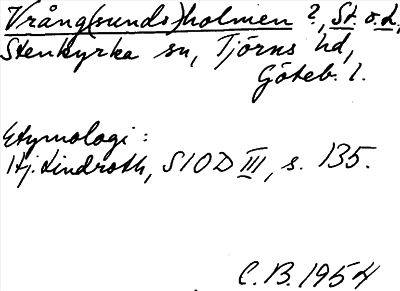 Vrång(sunds)holmen ?, St. o. L,
Stenkyrka sn, Tjörns hd,
Göteb. l.
Etymologi :
Hj. Lindroth, SIOD III, s. 135.
C. B. 1954